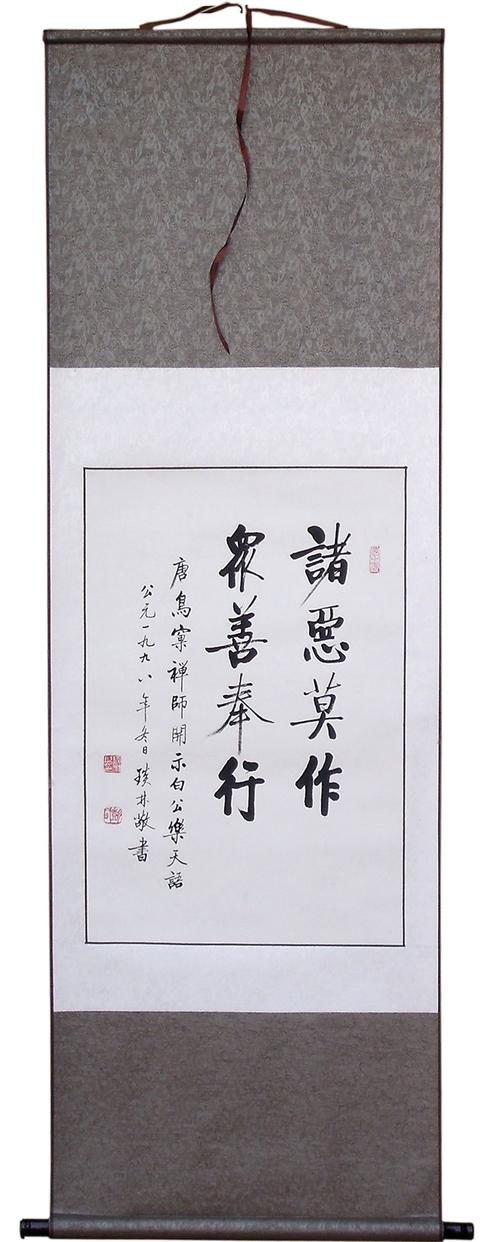 諸惡莫作
眾善奉行
唐鳥窠禪師開示白公樂天語
公元一九九八年冬日琰井敬書